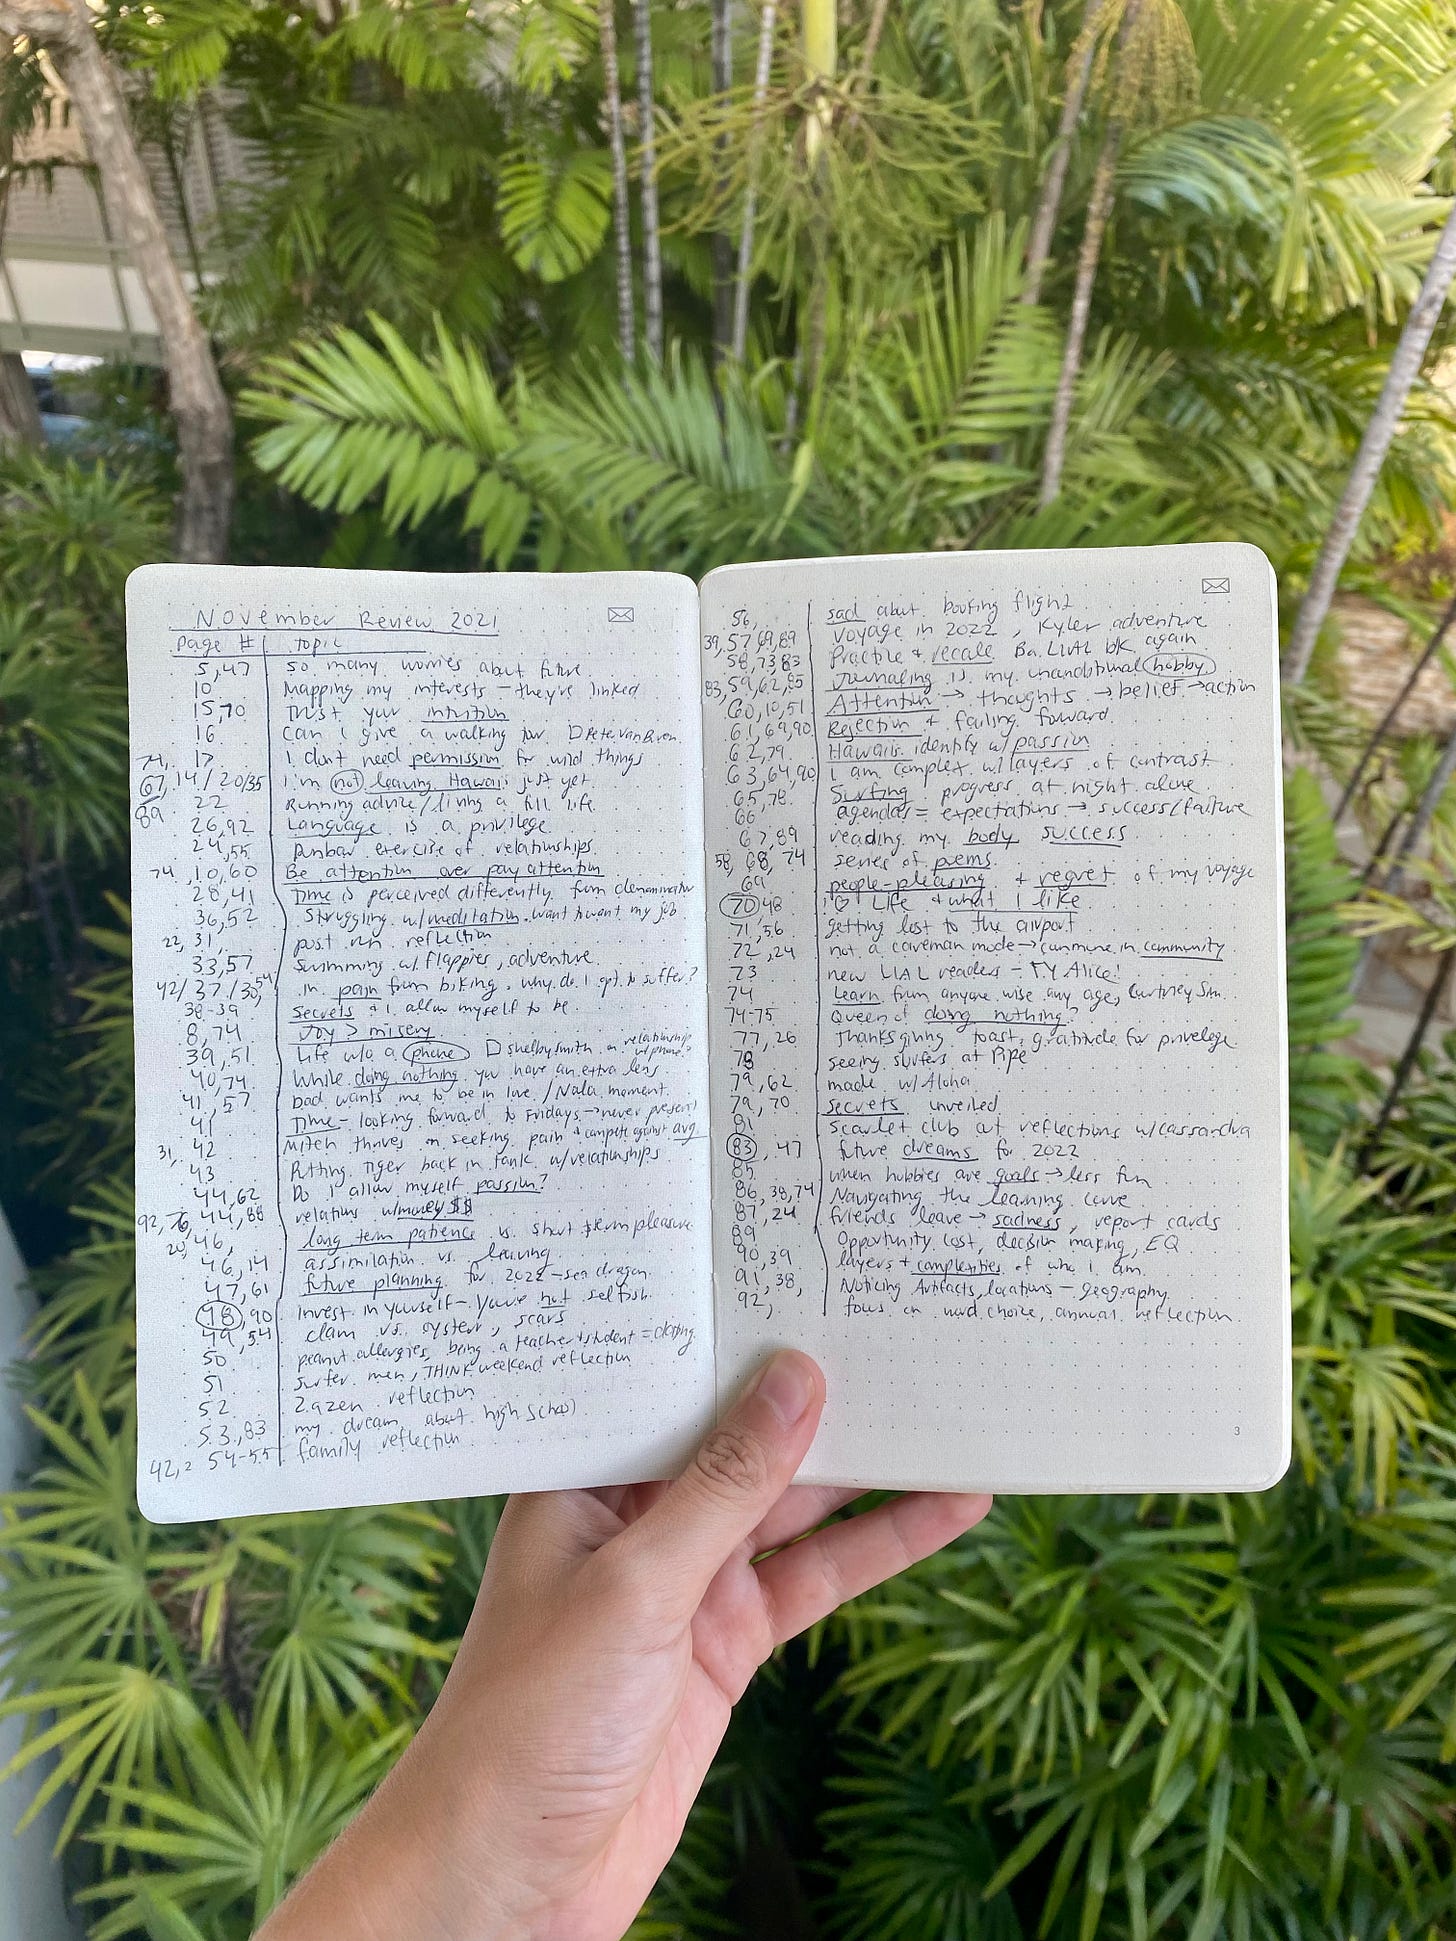 November Review 2021
Page # topic
5,47 so many worries about future
10 Mapping my interests - they're linked
15,70 Trust your intuition
16 Can I give a walking tour
74, 17 I don't need permission for wild things
67, 14/20/35 I'm not leaving Hawaii just yet
89 22 Running advice/living a full life
26,92 Language is a privilege
24,55 Dunbar exercise of relationships
74, 10,60 Be attention over pay attention
28,41 Time is perceived differently from denominator
36,52 Struggling w/ meditation. want my job
22, 31, post run reflection
33,57 swimming w/ flappies, adventure
42/37/30,54 in pain from biking, why do I opt to suffer?
38-39 Secrets & I allow myself to be
8,74 Joy > misery
39,51 Life w/o a phone Shelby Smith on relationship w/phone?
40,74 While doing nothing you have an extra lens
41,57 Dad wants me to be in love/Nala moment
41 Time - looking forward to Fridays → never present
31, 42 Mitch thrives on seeking pain & compete against avg
43 Putting tiger back in tank w/relationships
44,62 Do I allow myself passion?
92,76, 44,88 relations w/money $$
20, 46, long term patience vs. short term pleasure
46,14 assimilation vs. leaving
47,61 future planning for 2022 - sea dragon
48,90 Invest in yourself - you're not selfish
49,54 clam vs. oyster, scars
50 peanut allergies, being a teacher & student =
51 surfer men, THINK weekend reflection
52 Zazen reflection
53,83 my dream about high school
42,2 54-55 family reflection
56, sad about booking flight
39,57,69,89 Voyage in 2022, Kyler adventure
58,73,83 Practice & recale Ba. LIAL bk again
83,59,62,85 Journaling is my unconditional hobby
60,10,51 Attention → thoughts → belief → action
61,69,90 Rejection & failing forward
62,79 Hawaii: identify w/ passion
63,64,90 I am complex w/ layers of contrast
65,78 Surfing progress at night alone
66 agendas = expectations → success/failure
67,89 reading my body success
58, 68, 74 series of poems
69 people-pleasing & regret of my voyage
70,48 I ♡ Life & what I like
71,56 getting lost to the airport
72,24 not a caveman mode → commune in community
73 new LIAL readers - TY Alice!
74 Learn from anyone wise any age, Courtney Sm.
74-75 Queen of doing nothing?
77,26 Thanksgiving toast, gratitude for privilege
78 seeing surfers at Pipe
79,62 made w/ Aloha
79,70 Secrets unveiled
81 Scarlet club at reflections w/Cassandra
83, 47 future dreams for 2022
85 when hobbies are goals → less fun
86,38,74 Navigating the learning curve
87,24 friends leave → sadness, report cards
89 Opportunity cost, decision making, EQ
90,39 layers & complexities of who I am
91,38, Noticing Artifacts, locations - geography
92, focus on word choice, annual reflection
3